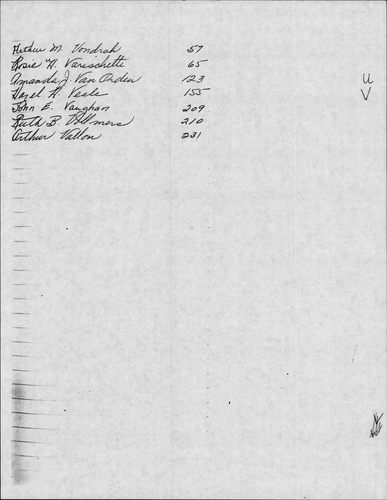 Arthur M. Vondrak 57
Rosie H. Varischetti 65
Amanda J. Van Orden 123
Hazel H. Veale 155
John E. Vaughan 209
Ruth B. Vollmers 210
Arthur Vallon 231
U
V